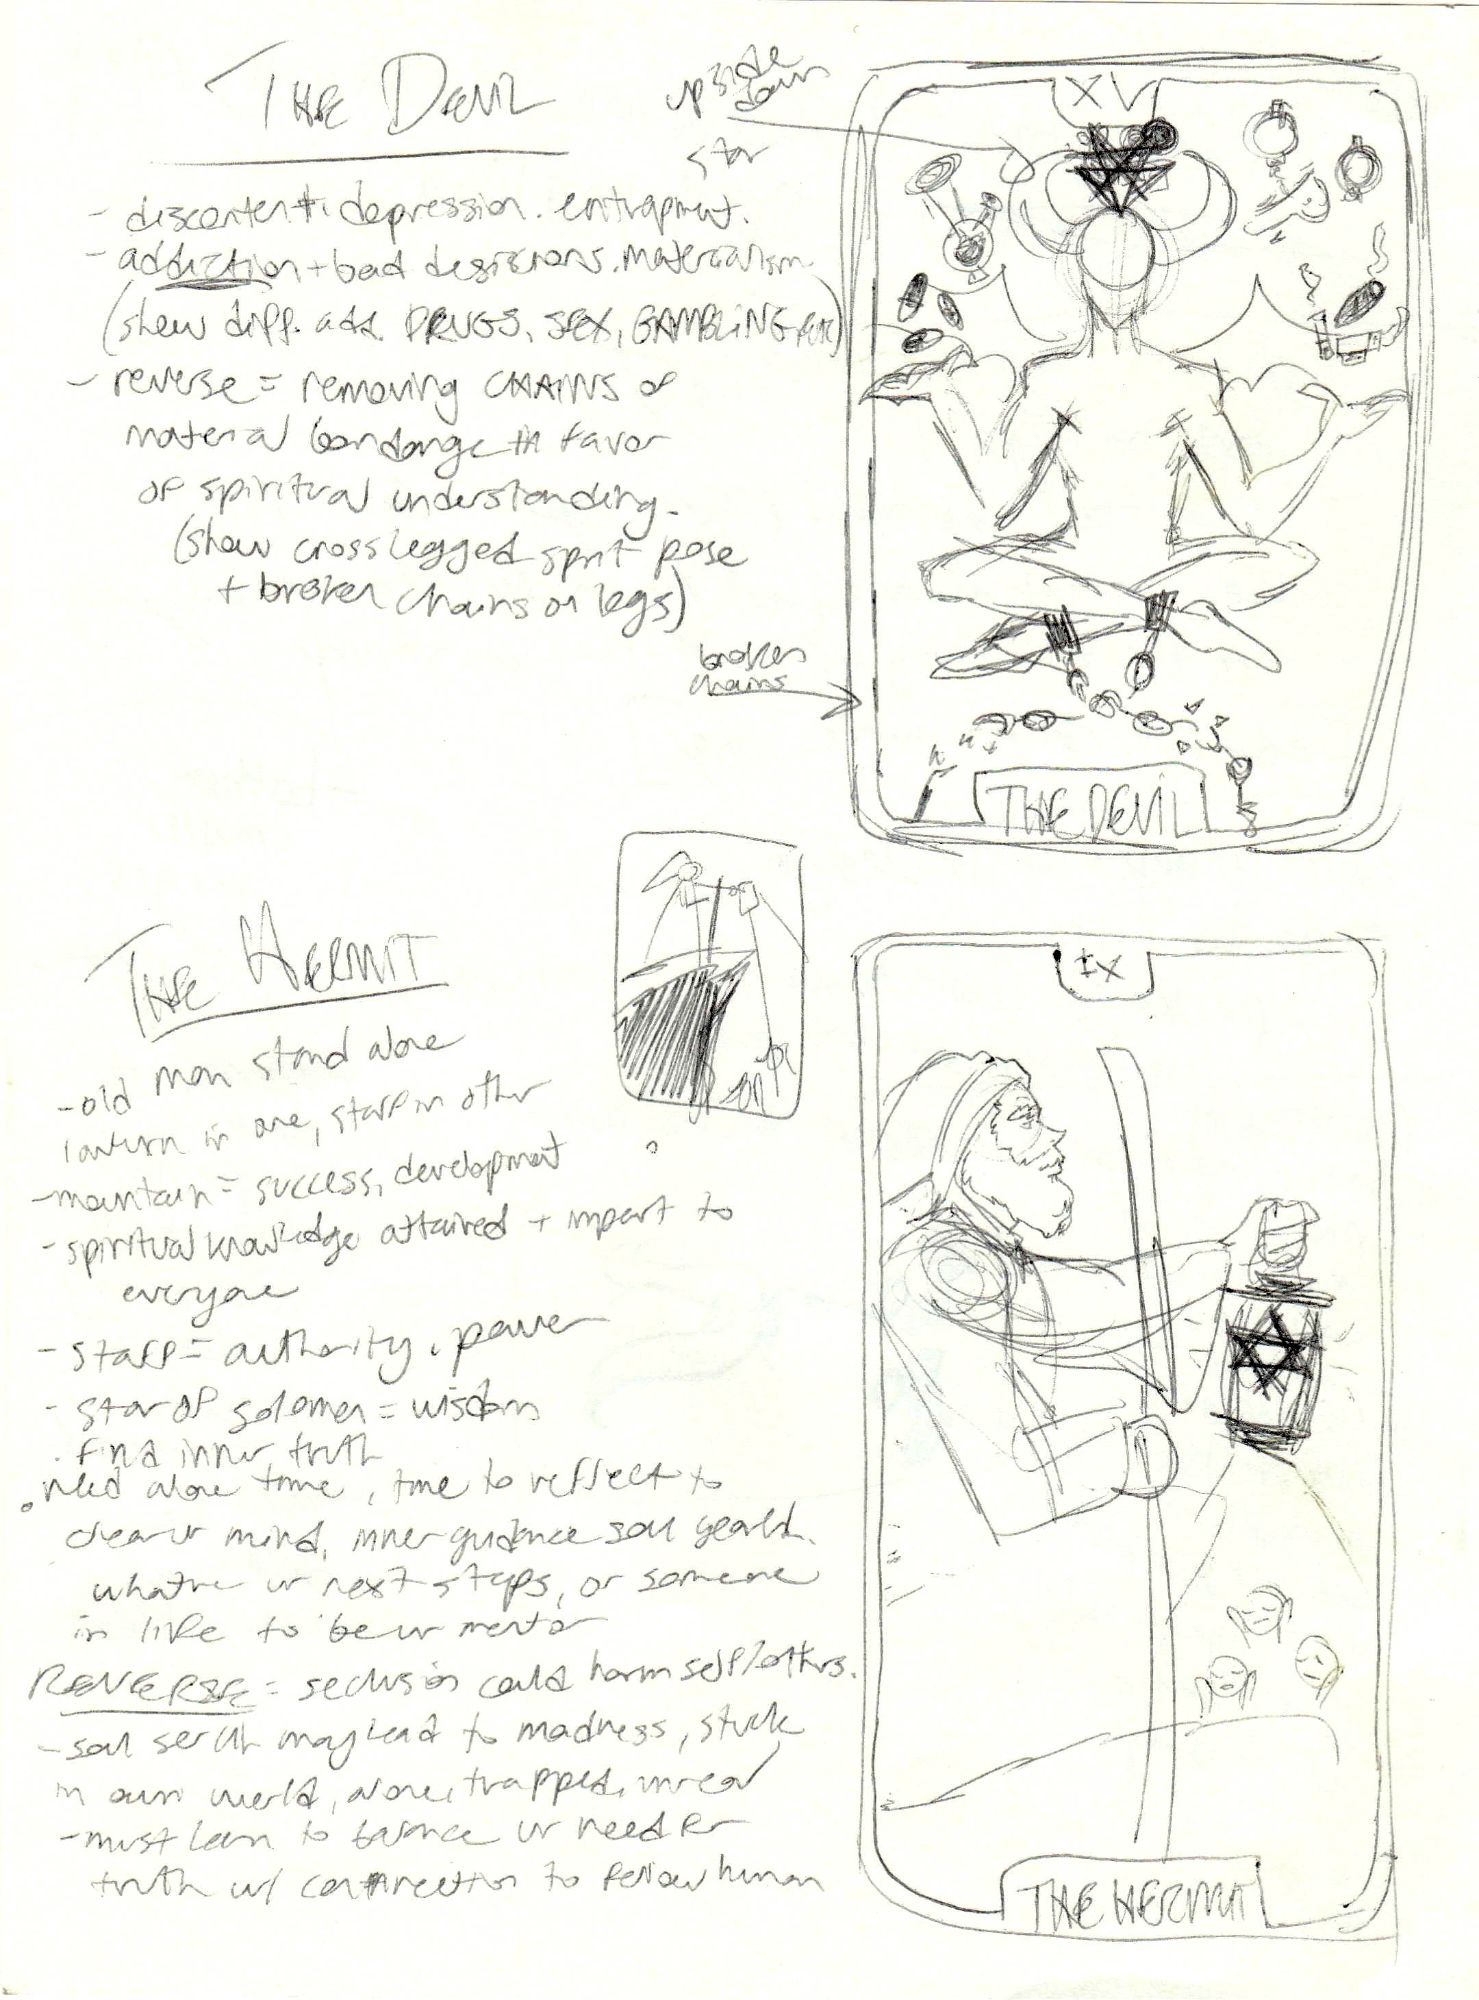 THE DEVIL
- discontent. depression. entrapment.
- addiction + bad desisions. materialism.
(show diff. add. DRUGS, SEX, GAMBLING etc)
- reverse = removing CHAINS of
material bondange in favor
of spiritual understanding.
(show cross legged sprit pose
+ broken chains on legs)
upside
down
star
broken
chains
XV
THE DEVIL
THE HERMIT
- old man stand alone
lanturn in one, staff in other
- mountain = success, development
- spiritual knowledge attained + impart to
everyone
- staff = authority, power
- star of solomen = wisdom
. find inner truth
. need alone time, time to reflect to
clear ur mind, inner guidance soul
ur next steps, or someone
in life to be ur mentor
REVERSE = seclusion could harm self/others.
- soul serch may lead to madness, stuck
in own world, alone, trapped, unreal
- must learn to balance ur need for
truth w/ connection to fellow human
IX
THE HERMIT